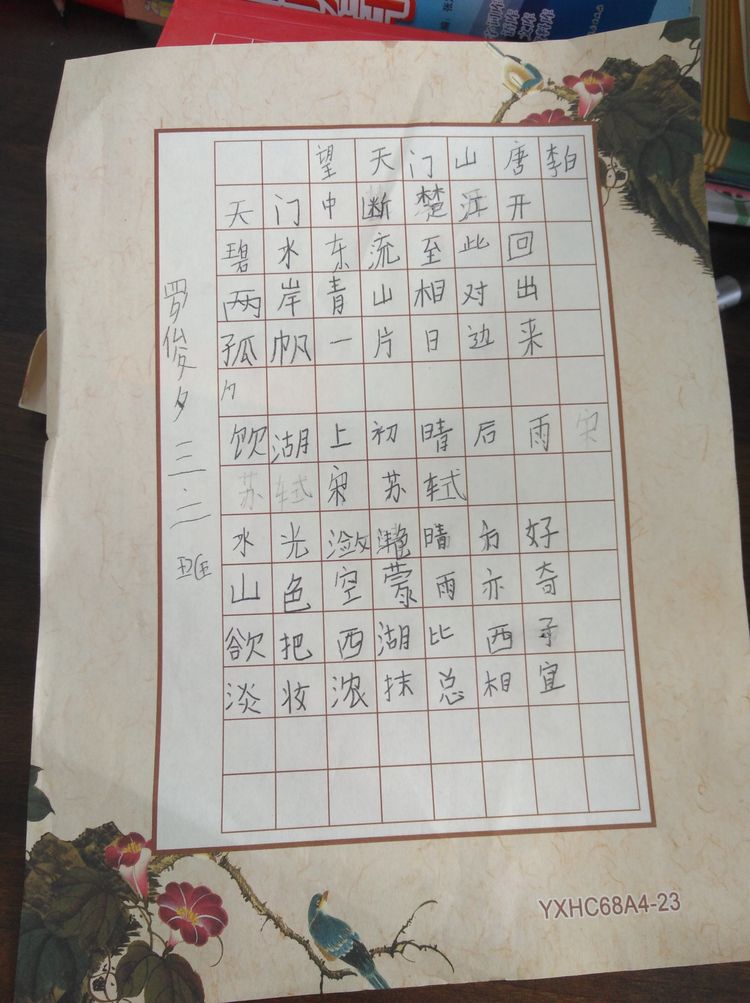 望天门山唐李白
天门中断楚江开
碧水东流至此回
两岸青山相对出
孤帆一片日边来
饮湖上初晴后雨宋
苏轼宋苏轼
水光潋滟晴方好
山色空蒙雨亦奇
欲把西湖比西子
淡妆浓抹总相宜
罗俊夕三.二班
YXHC68A4-23